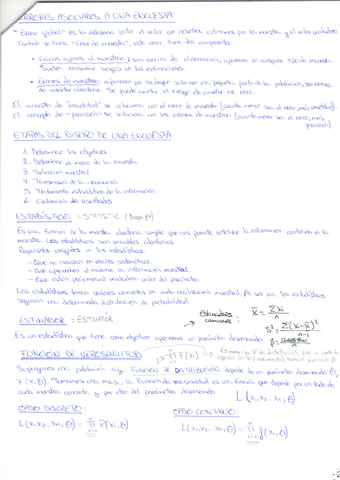 ERRORES ASOCIADOS A UNA ENCUESTA
"Error global" es la diferencia entre el valor que nosotros estimamos por la muestra y el valor verdadero.
También se llama "Error de muestreo", este error tiene dos componentes:
- Errores ajenos al muestreo: son errores de observación, aparecen en cualquier tipo de encuesta.
Suelen ocasionar sesgos en las estimaciones.
- Errores de muestreo: aparecen por trabajar solo con una pequeña parte de la población, son errores
de carácter aleatorio. Se puede acotar el riesgo de cometer ese error.
El concepto de "exactitud" se relaciona con el error de encuesta (cuanto menor sea el error, más exactitud).
El concepto de "precisión" se relaciona con los errores de muestreo (cuanto menor sea el error, más
precisión)
ETAPAS DEL DISEÑO DE UNA ENCUESTA
1. Determinar los objetivos
2. Determinar el marco de la encuesta
3. Selección muestral
4. Transmisión de la información
5. Tratamiento estadístico de la información
6. Evaluación de resultados
ESTADÍSTICO = STATISTIC
Es una función de la muestra aleatoria simple que nos permite sintetizar la información contenida en la
muestra. Los estadísticos son variables aleatorias.
Requisitos exigidos a los estadísticos:
- Que no incurran en errores sistemáticos.
- Que aprovechen al máximo la información muestral.
- Que estén próximos al verdadero valor del parámetro.
Los estadísticos toman valores concretos en cada realización muestral. Al ser v.a. los estadísticos
seguirán una determinada distribución de probabilidad.
ESTIMADOR = ESTIMATOR
Estimadores comunes:
x̄ = Σxi / n
S² = Σ(xi - x̄)² / n-1
Es un estadístico que tiene como objetivo aproximar un parámetro desconocido.
FUNCIÓN DE VEROSIMILITUD
Supongamos una población cuya FUNCIÓN DE DISTRIBUCIÓN depende de un parámetro desconocido Θ,
F(x, Θ). Tomamos una m.a.s., la función de verosimilitud es una función que depende por un lado de
cada muestra concreta y por otro del parámetro desconocido.
L(x₁, x₂... xn, Θ)
CASO DISCRETO:
CASO CONTINUO:
L(x₁, x₂... xn, Θ) = Π P(xi, Θ)
L(x₁, x₂... xn, Θ) = Π f(xi, Θ)